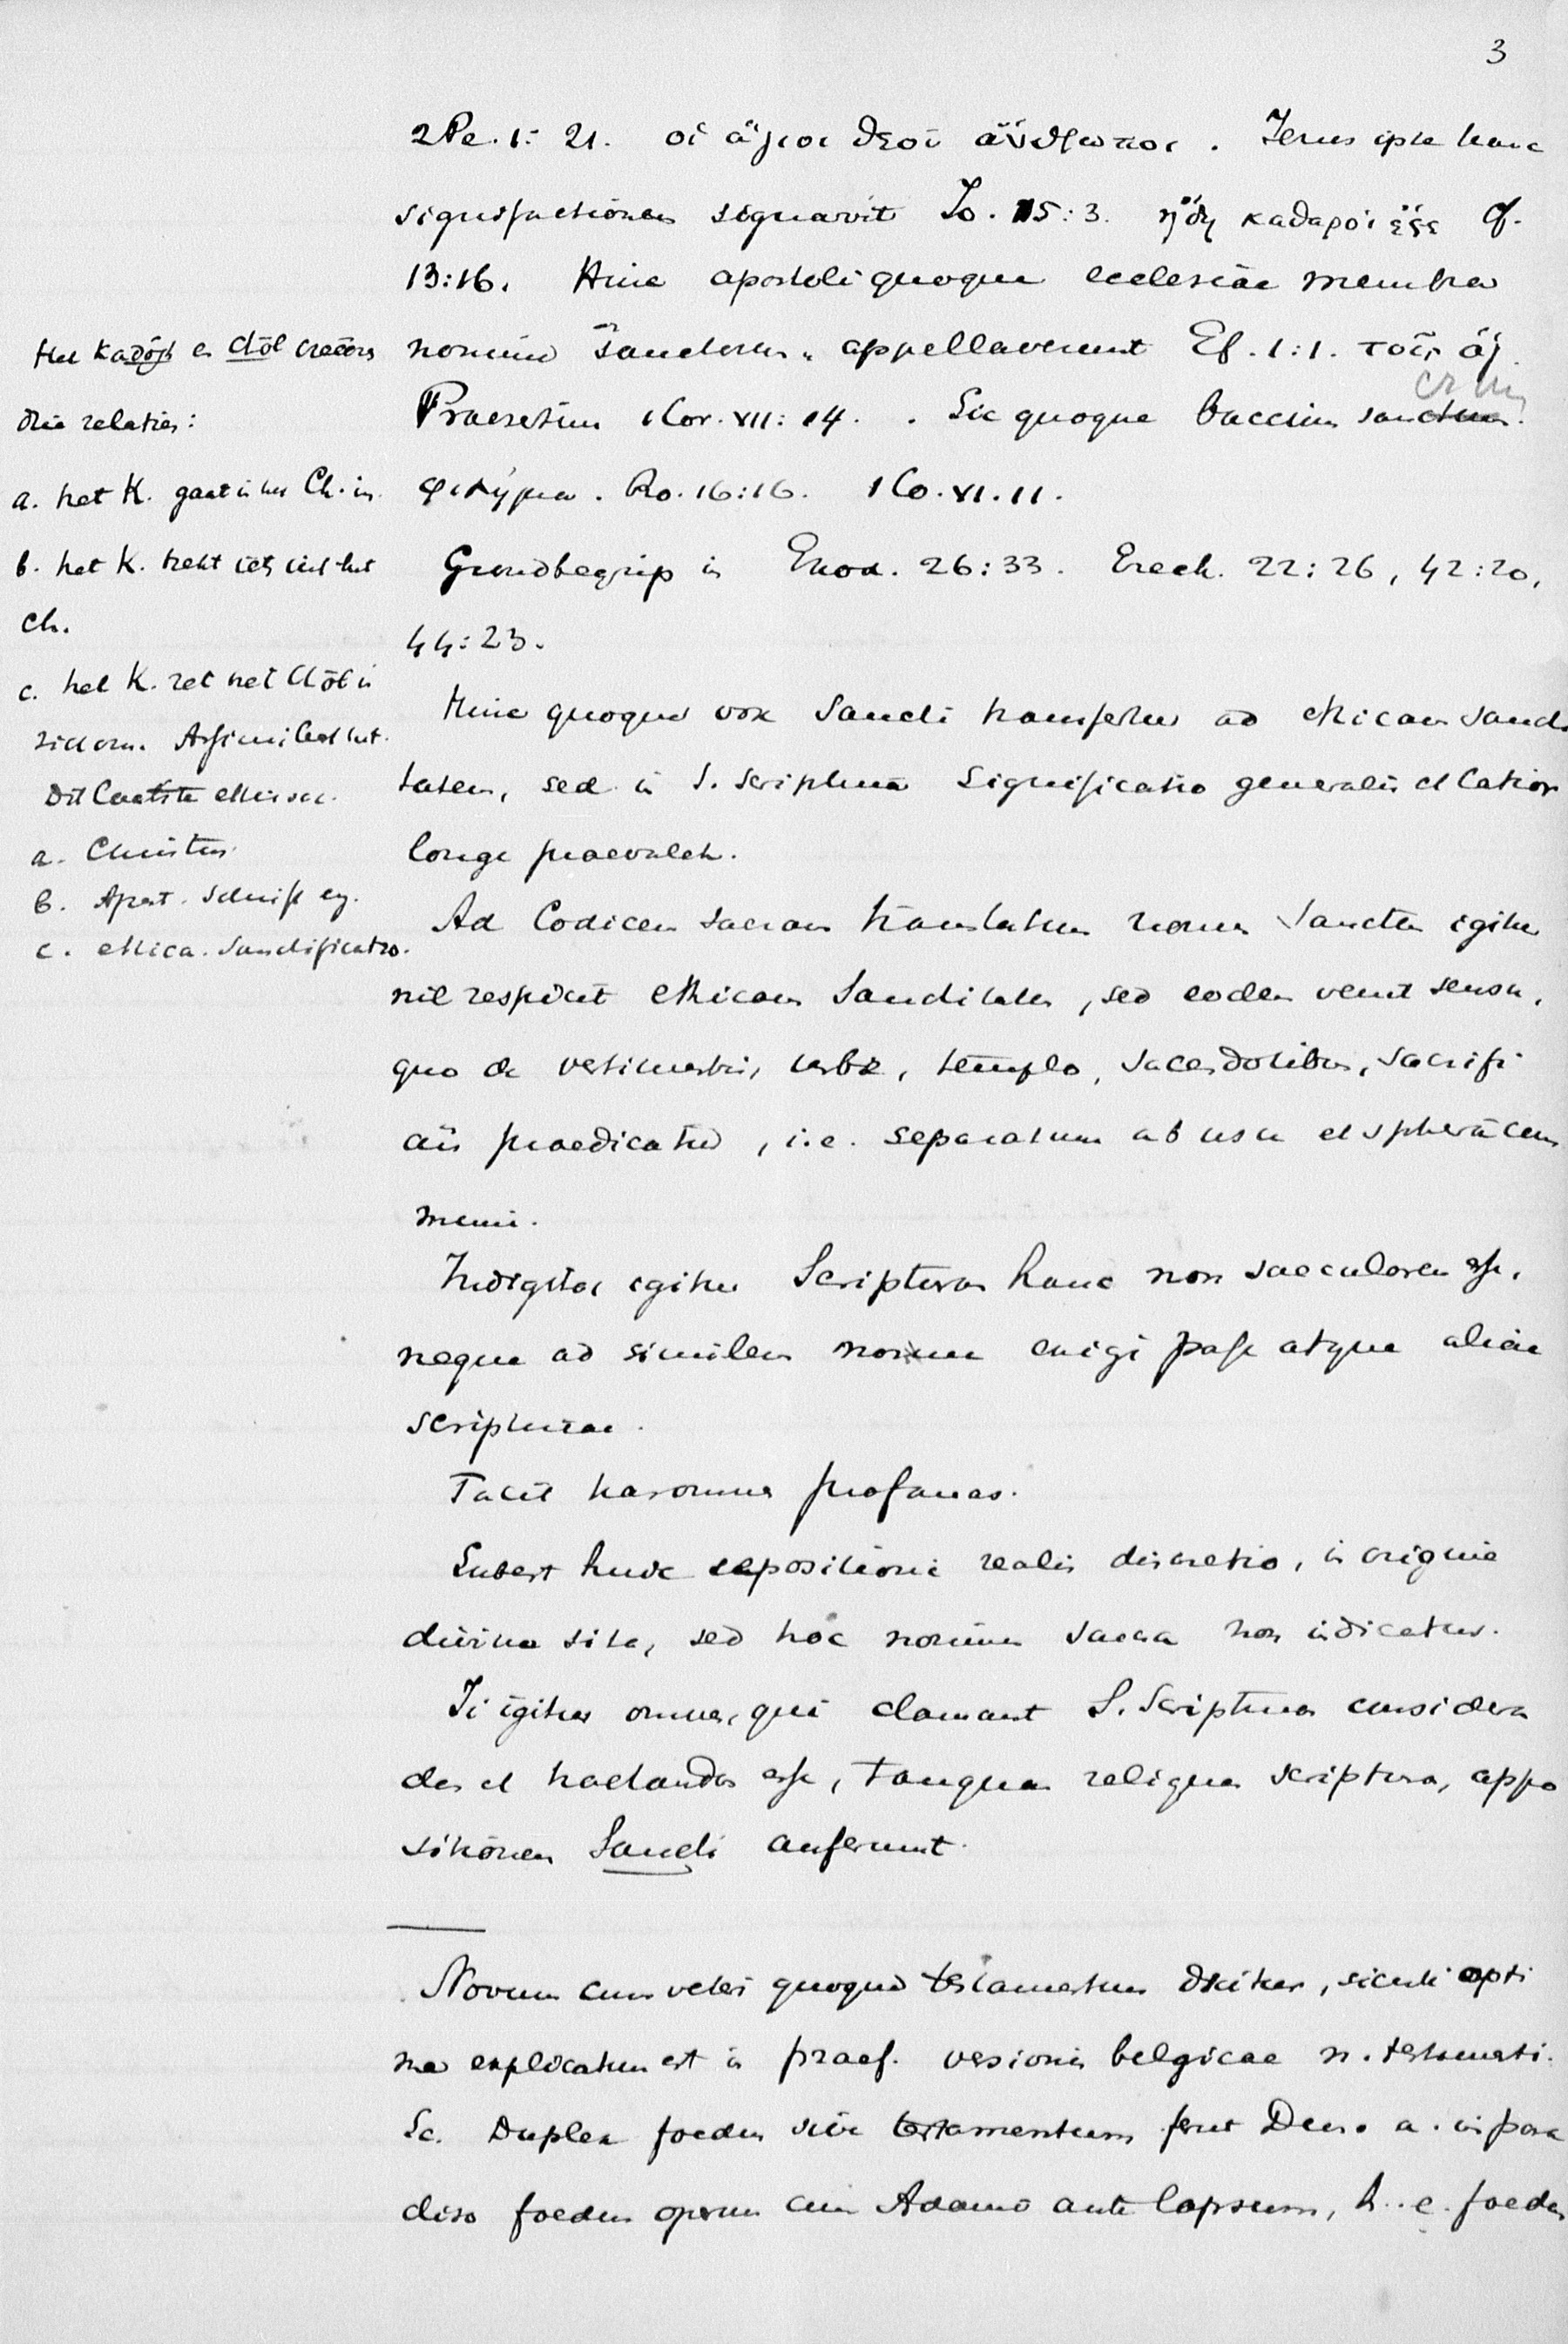 3
2 Pe. 1: 21. οἱ ἅγιοι θεοῦ ἄνθρωποι. Jesus ipse hanc
significationem signavit Jo. 15:3. ἤδη καθαροί ἐϛε cf.
13:16. Hinc apostoli quoque ecclesiae membra
nomine "sanctorum" appellaverunt Ef. 1:1. τοῖς ἁγ.
Praesertim 1 Cor. VII: 14. . Sic quoque baccium sanctum.
φιλήμα. Ro. 16:16. 1 Co. VI. 11.
Grundbegrip in Exod. 26:33. Ezech. 22:26, 42:20,
44:23.
Hinc quoque vox Sancti transfertur ad ethicam sancti
tatem, sed in S. Scriptura significatio generalis et latior
longe praevalet.
Ad Codicem sacram translatum nomen Sanctum igitur
nil respicit ethicam Sanctitatem, sed eodem venit sensu,
quo de vestimentis, urbe, templo, sacerdotibus, sacrifi
ciis praedicatur, i.e. separatum ab usu et sphera com
muni.
Indigitat igitur Scripturam hanc non saecularem esse,
neque ad similem normam exigi posse atque aliae
scripturae.
Facit has omnes profanas.
Subest huic sepositioni realis discretio, in origine
divina sita, sed hoc nomine sacra non indicatur.
Ii igitur omnes, qui clamant S. Scripturam consideran
dam et tractandam esse, tanquam reliquam scripturam, appo
sitionem Sancti auferunt.
Novum cum veteri quoque testamentum dicitur, sicuti opti
me explicatum est in praef. versionis belgicae n. testamenti.
Sc. Duplex foedus sive testamentum Deus a. in para
diso foedus operum cum Adamo ante lapsum, h. e. foedus
Het Kadôsj en Chôl creëren
drie relaties:
a. het K. gaat in het Ch. in.
b. het K. trekt iets uit het
Ch.
c. het K. zet het Chôl in
zich om. Assimileert het.
Dit laatste ethisch.
a. Christus
b. Apost. Schrift eg.
c. ethica. Sanctificatio.